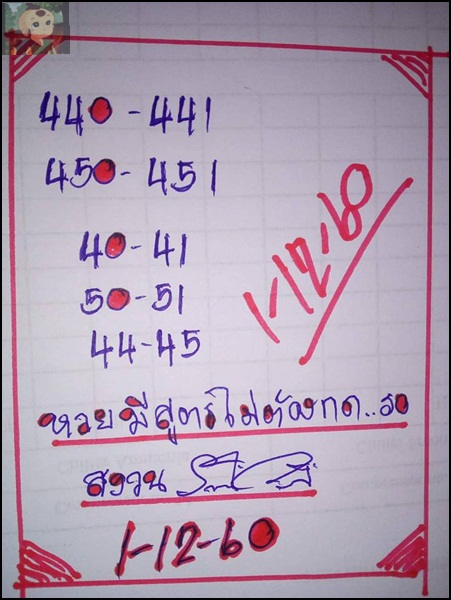 440 - 441
450 - 451
40 - 41
50 - 51
44 - 45
1-12-60
หวยมีสูตรไม่ต้องกด..รอ
สงวน
1-12-60